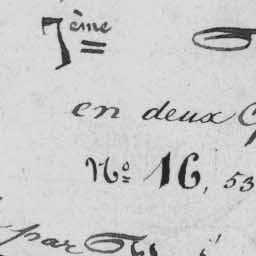 7ème
en deux
No 16, 53
par